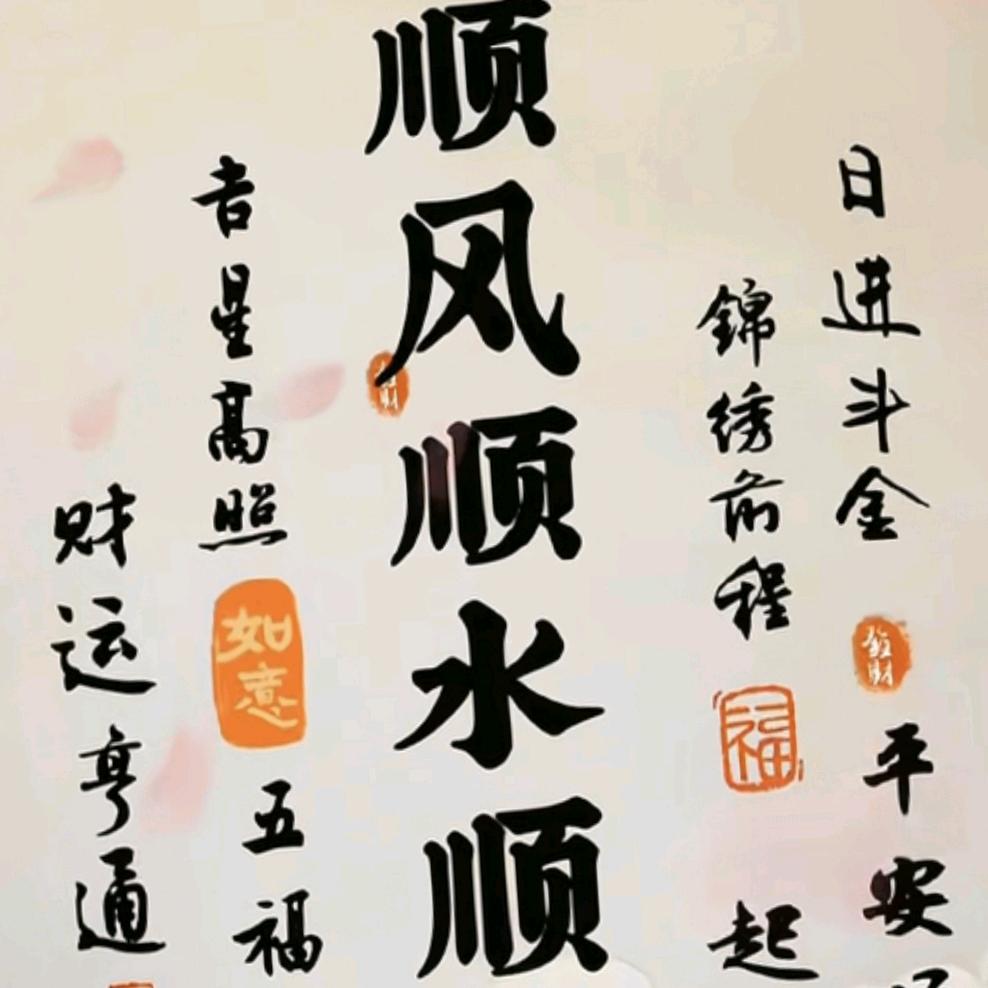 日进斗金
發财
平安
錦绣前程
福
起
顺风顺水顺
發财
吉星高照
如意
五福
财运亨通